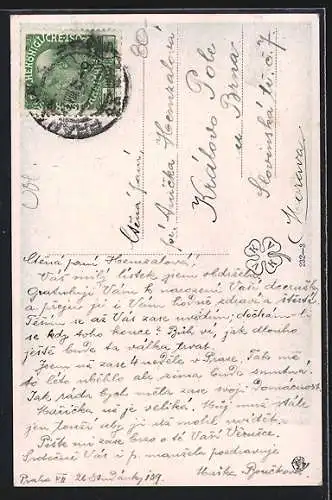 Ctěná paní
pí. Anička Hemzalová
Královo Pole
u Brna
Slovinská ul. č 7
Morava
80-
232-3
Ctěná paní Hemzalová!
Váš milý lístek jsem obdržela.
Gratuluji Vám k narození Vaší dcerušky
a přeji jí i Vám hodně zdraví a štěstí.
Těším se až Vás zase uvidím; dočkám-li
se kdy toho konce? Bůh ví, jak dlouho
ještě bude ta válka trvat.
Jsem už zase 4 neděle v Praze. Tak mě
to léto uběhlo ale zima bude smutná.
Tak ráda bych měla zase svoji domácnost.
Mařička už je veliká. Můj muž stále
jen touží aby já mohl vidět.
Pište mi zase brzo o té Vaší Věrušce.
Srdečně Vás i p. manžela pozdravuje
Boučková
Praha VII